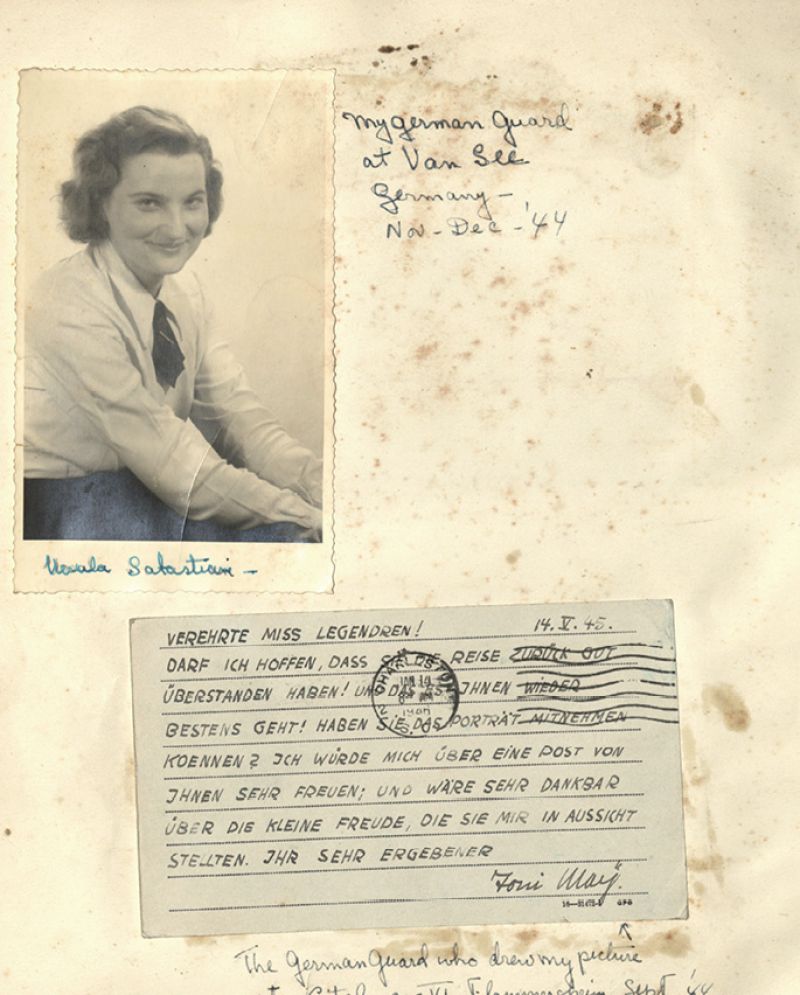 My german Guard
at Van See
Germany -
Nov - Dec - '44
Sabastian -
VEREHRTE MISS LEGENDREN! 14. V. 45.
DARF ICH HOFFEN, DASS SIE DIE REISE ZURÜCK GUT
ÜBERSTANDEN HABEN! UND DAS ES IHNEN WIEDER
BESTENS GEHT! HABEN SIE DAS PORTRÄT MITNEHMEN
KOENNEN? ICH WÜRDE MICH ÜBER EINE POST VON
IHNEN SEHR FREUEN; UND WÄRE SEHR DANKBAR
ÜBER DIE KLEINE FREUDE, DIE SIE MIR IN AUSSICHT
STELLTEN. IHR SEHR ERGEBENER
Toni May
CHARLESTON
S. C.
GPO
The German Guard who drew my picture
VI Sept '44